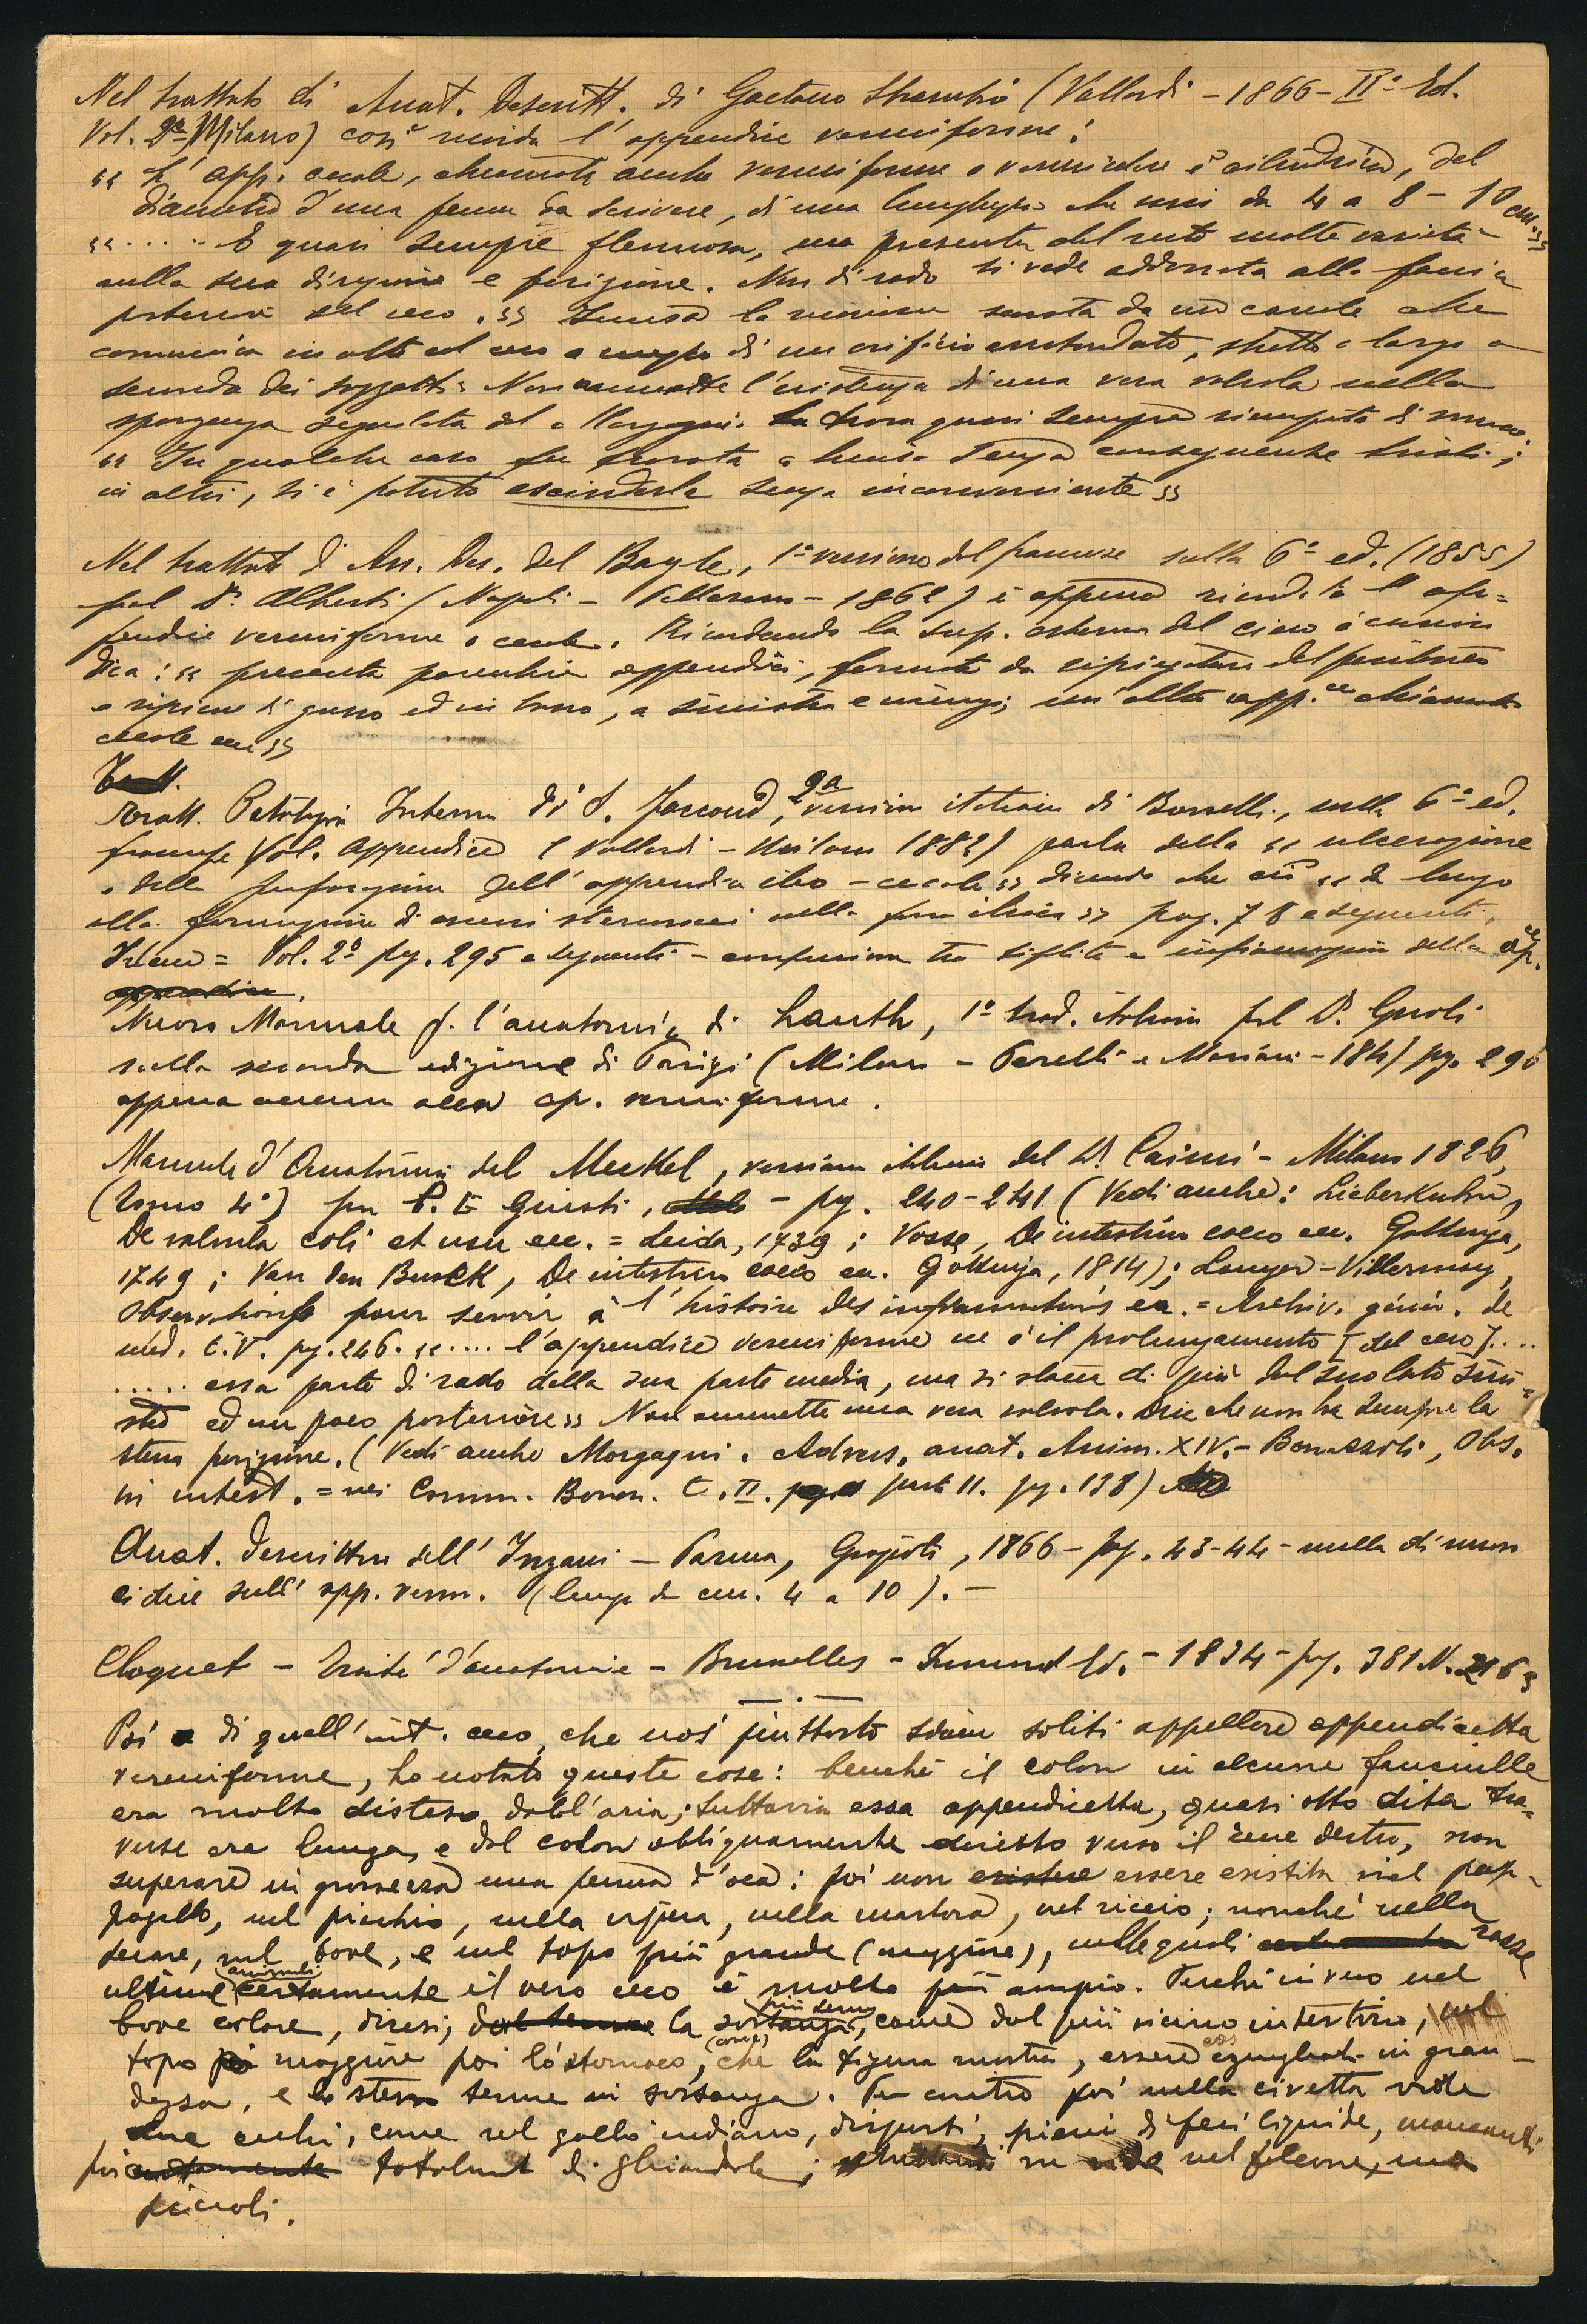 Nel trattato di Anat. Descritt. di Gaetano Strambio (Vallardi - 1866 - IIª Ed.
Vol. 2º Milano) così ricorda l'appendice vermiforme:
« L'app. cecale, chiamata anche vermiforme o vermicolare è cilindrica, del
diametro d'una penna da scrivere, di una lunghezza che varia da 4 a 8 - 10 cm. »
« ..... È quasi sempre flessuosa, ma presenta del resto molte varietà
nella sua direzione e posizione. Non di rado si vede addossata alla faccia
posteriore del ceco. » la da un canale che
comunica in alto col ceco a mezzo di un orifizio arrotondato, stretto o largo a
seconda dei soggetti. Non ammette l'esistenza di una vera valvola nella
sporgenza segnalata dal Morgagni. La trova quasi sempre riempita di muco.
« In qualche caso fu trovata senza conseguenze tristi;
in altri, si è potuto escinderla senza inconveniente »
Nel trattato di An. Des. del Bayle, 1ª versione dal francese sulla 6ª ed. (1855)
pel Dr. Alberti (Napoli - 1862) è appena ricordata l'ap=
pendice vermiforme o cecale. Ricordando la sup. esterna del cieco
dica: « presenta parecchie appendici, formate da ripiegature del peritoneo
e ripiene di grasso ed in basso, a sinistra e un'altra app.ce chiamata
cecale ecc »
Tratt.
Tratt. Patologia Interna di S. Jaccoud, 2ª versione italiana di Borrelli, sulla 6ª ed.
francese Vol. Appendice (Vallardi - Milano 1882) parla della « ulcerazione
e della perforazione dell'appendice ileo-cecale » dicendo che ciò « dà luogo
alla formazione di ascessi stercoracei nella fossa iliaca » pag. 78 e seguenti.
Idem = Vol. 2º pg. 295 e seguenti - confusione tra tiflite e infiammazione della ap.ce
appendice.
Nuovo Manuale p. l'anatomia di Lauth, 1ª trad. italiana pel Dr. Gnoli
sulla seconda edizione di Parigi (Milano - Perelli e Mariani - 184) pg. 290
appena accenna alla ap. vermiforme.
Manuale d'Anatomia del Meckel, versione italiana del Dr. Caimi - Milano 1826,
(Tomo 4º) per P. E. Giusti, - pg. 240-241 (Vedi anche: Lieberkuhn,
De valvula coli et usu ecc. = Leida, 1739; Vosse, De intestino coeco ecc. Gottinga,
1749; Van den Busck, De intestino coeco ecc. Gottinga, 1814); Louyer-Villermay,
Observations pour servir à l'histoire des inflammations ecc. = Archiv. génér. de
méd. t. V. pg. 246. « .... l'appendice vermiforme ne è il prolungamento [del ceco]....
..... essa parte di rado della sua parte media, ma si stacca di più dal suo lato sini=
stro ed un poco posteriore » Non ammette una vera valvola. Dice che non ha sempre la
stessa posizione. (Vedi anche Morgagni. Advers. anat. Anim. XIV. - Bonazzoli, Obs.
in intest. = nei Comm. Bonon. t. II. parte 11. pg. 138)
Anat. descrittiva dell'Inzani - Parma, Grazioli, 1866 - pag. 43-44 - nulla di nuovo
ci dice sull'app. verm. (lunga da cm. 4 a 10). -
Cloquet - Traité d'anatomie - Bruxelles - Ed. - 1834 - pg. 381 N. 2163
Poi di quell'int. ceco, che noi piuttosto siam soliti appellare appendicetta
vermiforme, ho notato queste cose: benchè il colon in alcune fanciulle
era molto disteso dall'aria; tuttavia essa appendicetta, quasi otto dita tra=
verse era lunga, e dal colon obliquamente diretto verso il rene destro, non
superare in grossezza una penna d'oca: poi non esistere essere esistita nel pap-
pagallo, nel picchio, nella vipera, nella martora, nel riccio; nonchè nella
lepre, nel bove, e nel topo più grande (maggiore), nelle quali razze
ultime (animali) certamente il vero ceco è molto più ampio. Perchè in vero nel
bove colore, diresi, dal tenue la sostanza (più tenue), come dal più vicino intestino, nel
topo più maggiore poi lo stomaco, (come) che la figura mostra, essere eguagliato in gran-
dezza, e lo stesso tenue in sostanza. Per contro poi nella civetta vide
due cechi, come nel gallo indiano, disgiunti, pieni di feci liquide, mancanti
poi totalment di ghiandole; ne vide nel falcone, ma
piccoli.